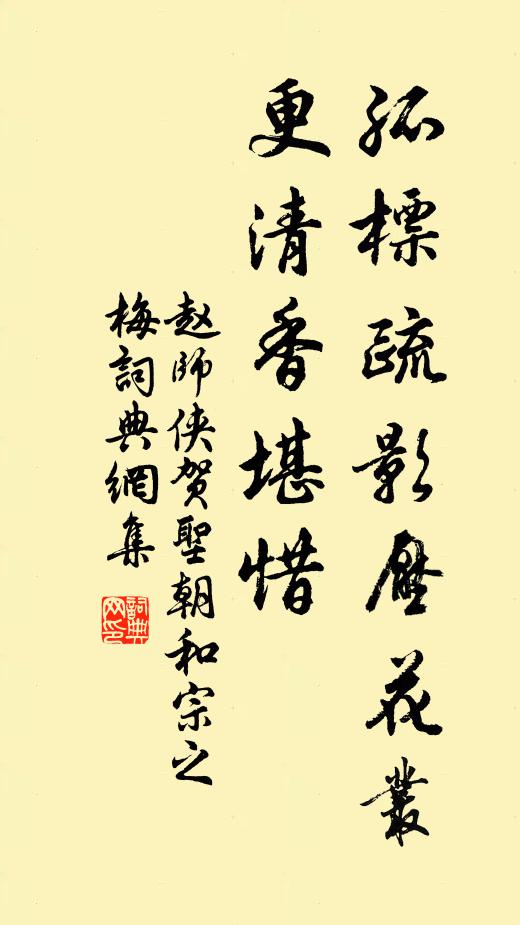 孤標疏影壓花叢
更清香堪惜
赵師俠贺聖朝和宗之
梅詞典網集
詞典网印